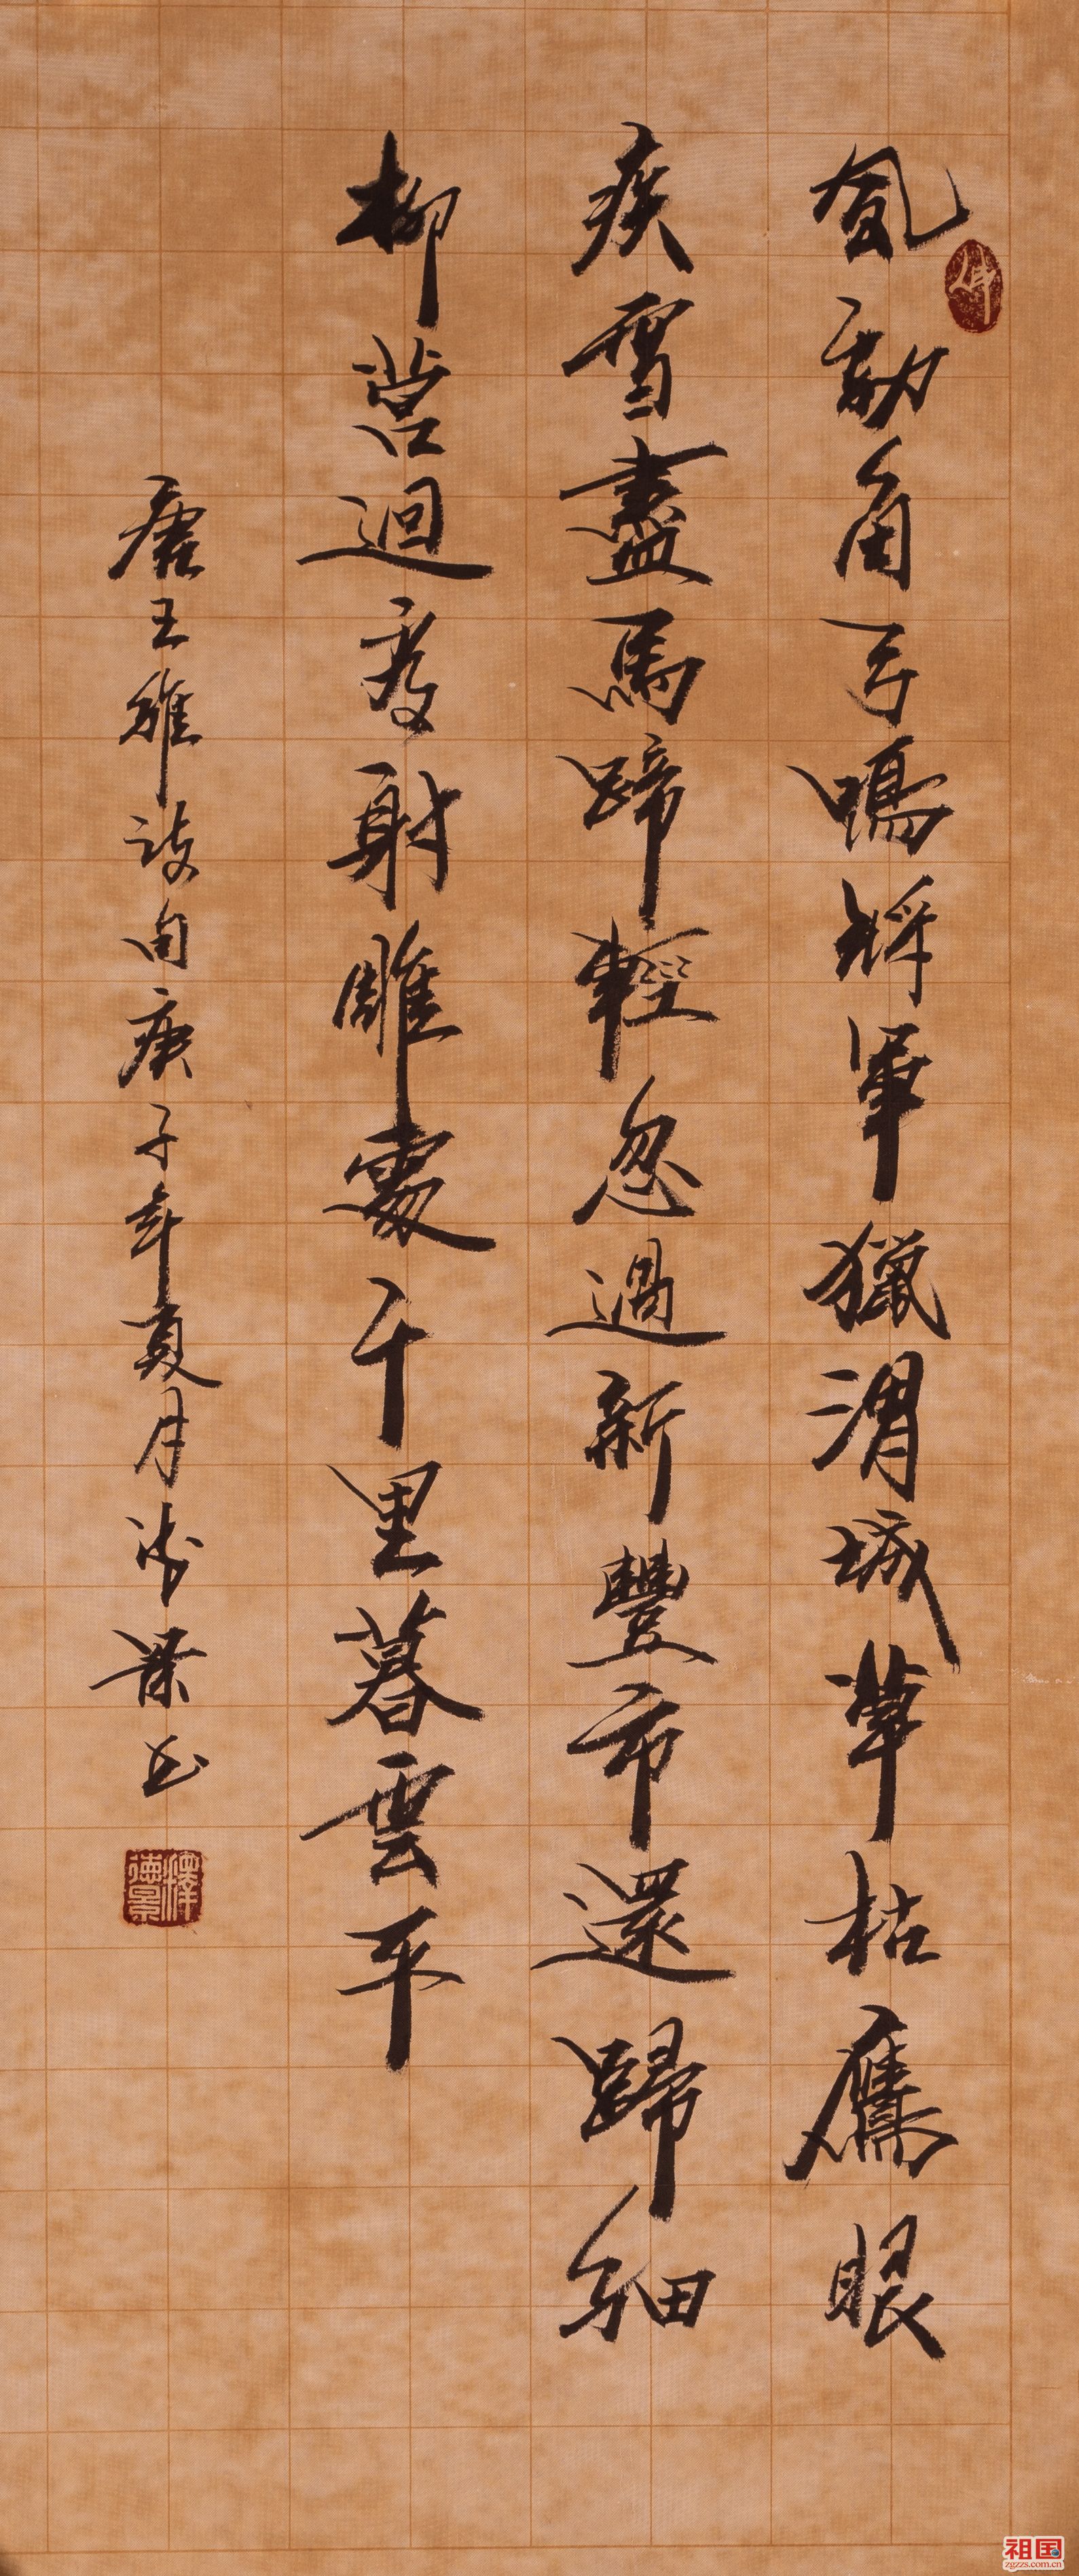 風勁角弓鳴將軍獵渭城草枯鷹眼
疾雪盡馬蹄輕忽過新豐市還歸細
柳營迴看射雕處千里暮雲平
唐王維詩句庚子年夏月景書
釋德景
祖国
zgzzs.com.cn